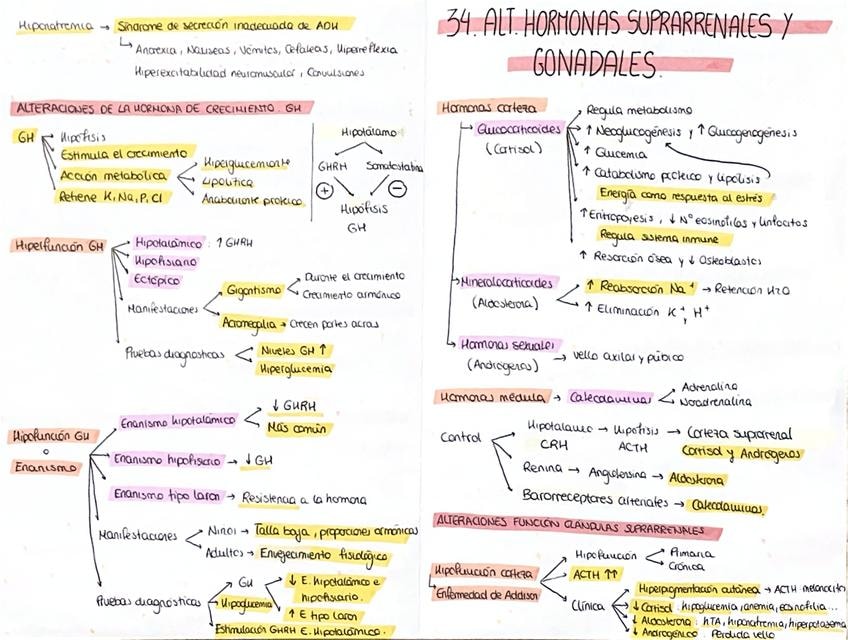 Hiponatremia → Síndrome de secreción inadecuada de ADH
↳ Anorexia, Náuseas, Vómitos, Cefaleas, Hiperreflexia
Hiperexcitabilidad neuromuscular, Convulsiones
ALTERACIONES DE LA HORMONA DE CRECIMIENTO. GH
GH
Hipófisis
Estimula el crecimiento
Acción metabólica
Hiperglucemiante
Lipolítica
Anabolizante proteico
Retiene K, Na, P, Cl
Hipotálamo
GHRH Somatostatina
+ −
Hipófisis
GH
Hiperfunción GH
Hipotalámico : ↑ GHRH
Hipofisiario
Ectópico
Manifestaciones
Gigantismo
Durante el crecimiento
Crecimiento armónico
Acromegalia → Crecen partes acras
Pruebas diagnosticas
Niveles GH ↑
Hiperglucemia
Hipofunción GH
o
Enanismo
Enanismo hipotalámico
↓ GHRH
Más común
Enanismo hipofisiario → ↓ GH
Enanismo tipo Laron → Resistencia a la hormona
Manifestaciones
Niños → Talla baja, proporciones armónicas
Adultos → Envejecimiento fisiológico
Pruebas diagnósticas
GH
↓ E. hipotalámico e
hipofisiario.
↑ E tipo Laron
Hipoglucemia
Estimulación GHRH E. Hipotalámico.
34. ALT. HORMONAS SUPRARRENALES Y
GONADALES.
Hormonas corteza
Glucocorticoides
(Cortisol)
Regula metabolismo
↑ Neoglucogénesis y ↑ Glucogenogénesis
↑ Glucemia
↑ Catabolismo proteico y lipólisis
Energía como respuesta al estrés
↑ Eritropoyesis, ↓ Nº eosinófilos y linfocitos
Regula sistema inmune
↑ Resorción ósea y ↓ Osteoblastos
Mineralocorticoides
(Aldosterona)
↑ Reabsorción Na⁺ → Retención H2O
↑ Eliminación K⁺, H⁺
Hormonas sexuales
(Andrógenos)
→ vello axilar y púbico
Hormonas médula → Catecolaminas
Adrenalina
Noradrenalina
Control
Hipotálamo → Hipófisis → Corteza suprarrenal
CRH ACTH Cortisol y Andrógenos
Renina → Angiotensina → Aldosterona
Barorreceptores arteriales → Catecolaminas
ALTERACIONES FUNCIÓN GLÁNDULAS SUPRARRENALES
Hipofunción corteza
Enfermedad de Addison
Hipofunción
Primaria
Crónica
ACTH ↑↑
Clínica
Hiperpigmentación cutánea → ACTH melanocito
↓ Cortisol: hipoglucemia, anemia, eosinofilia...
↓ Aldosterona: hTA, hiponatremia, hiperpotasemia
↓ Androgénico: Pérdida vello